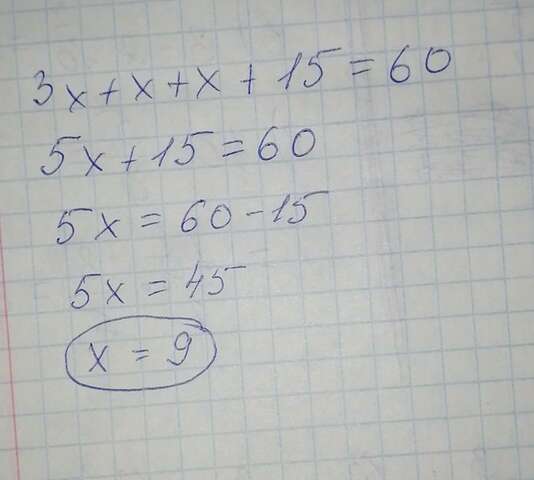 3x+x+x+15=60
5x+15=60
5x=60-15
5x=45
x=9